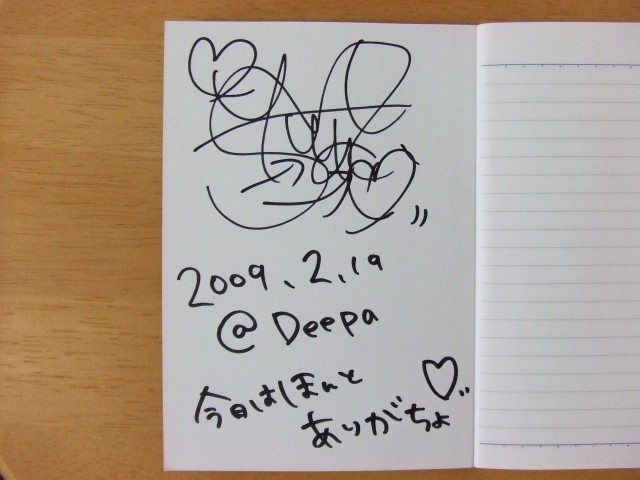 2009.2.19
@ Deepa
今日はほんと
ありがちょ